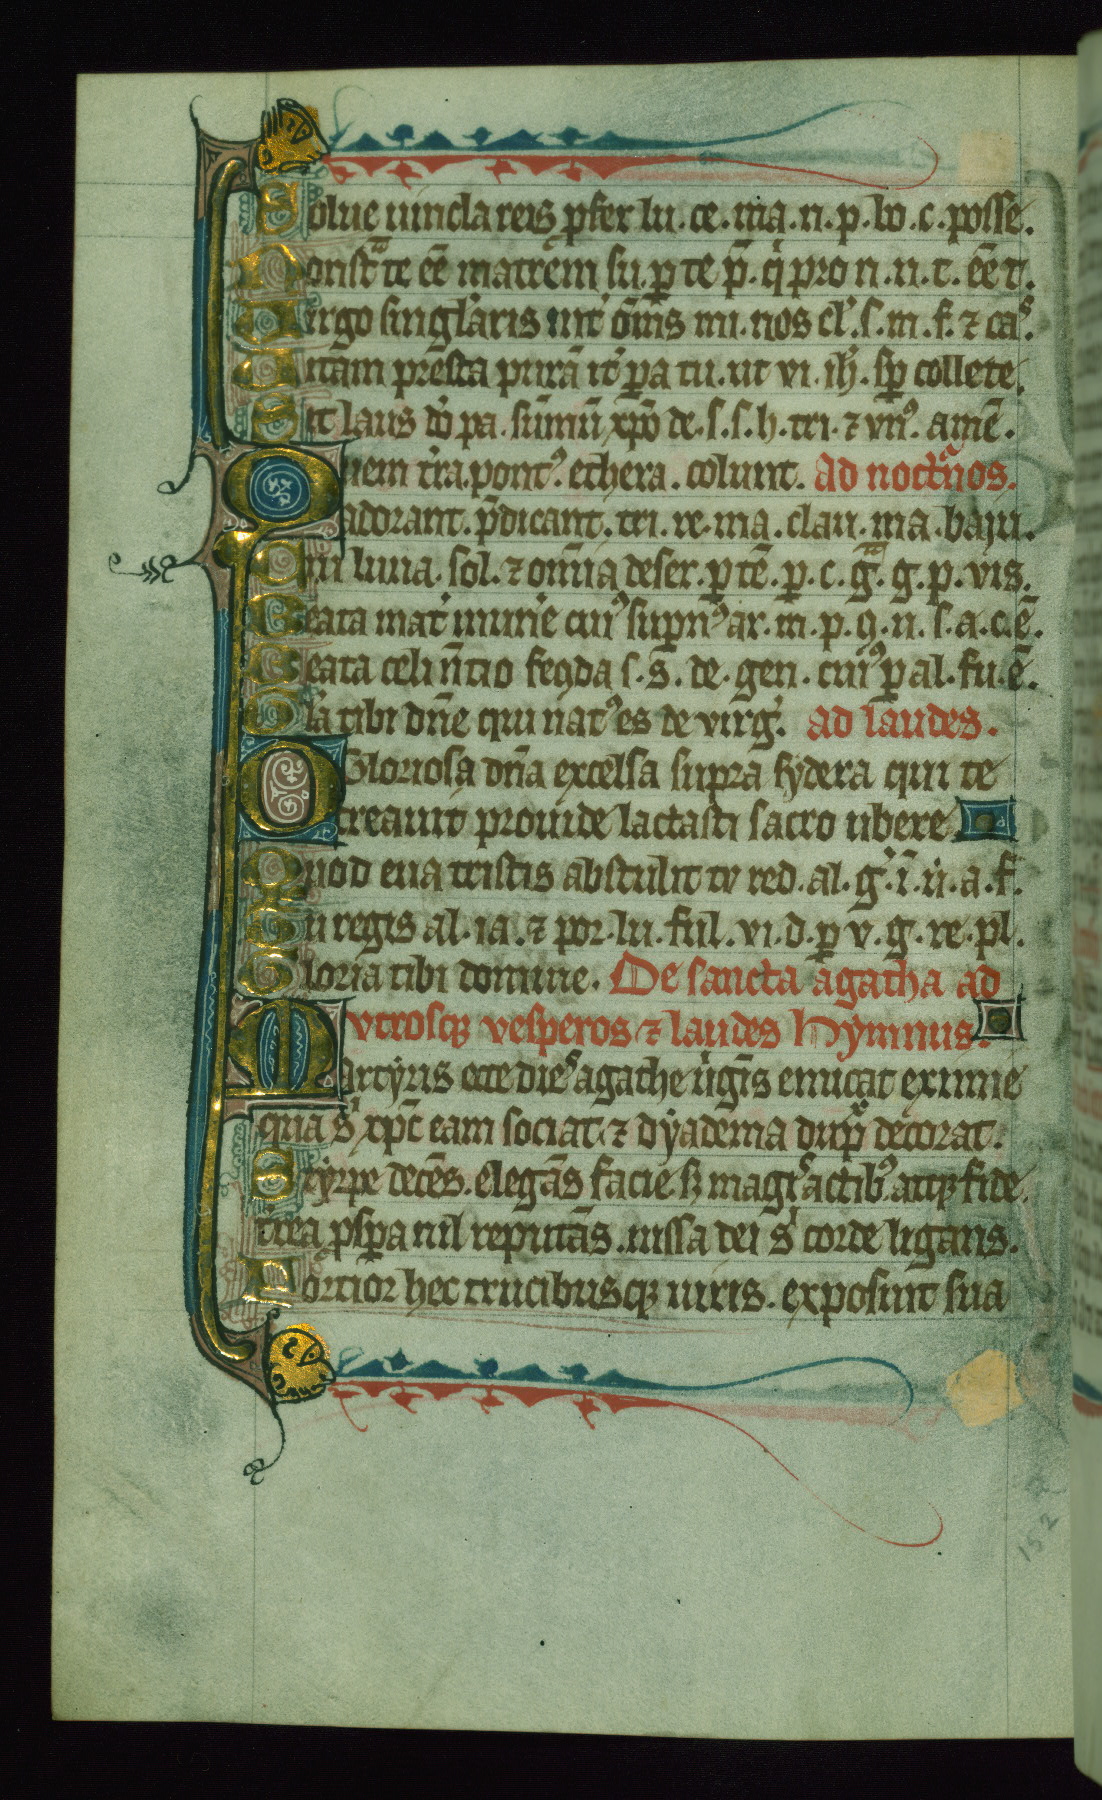 Solue uincla reis ꝓfer lu. ce. ma. n. p. lo. c. posse.
Monstᵃ te eē matrem su. p te p̄. q̇ pro n. n. t. eē t.
Uirgo singlaris int̓ om̄s mi. nos cl̓. s. m. f. ⁊ caˢ.
Uitam presta purā it̓ pa tu. ut vi. ih̄. sꝑ collete.
Sit laus dō pa. sūmū xp̄o de. s. s. h. tri. ⁊ vn̓. amē.
Quem tr̄a. pontꝰ. ethera. colunt. Ad noctn̄os.
adorant. p̄dicant. tri. re. ma. clau. ma. baiu.
Cui luna. sol. ⁊ om̄ia deser. ꝑ tē. p. c. g̅. g. p. vis.
Beata mat̓ mun̄e cuiꝰ supnꝰ ar. m. p. q. n. s. a. c. ē.
Beata celi n̄tio feqda s. s̄. de. gen. cuiꝰ ꝑ al. fu. ē.
Gl̓a tibi dn̄e qui natꝰ es de virg̓. ad laudes.
O Gloriosa dn̄a excelsa supra sydera qui te
creauit prouide lactasti sacro ubere
Quod eua tristis abstulit tu red. al. g̓. ī. u̇. a. f.
Tu regis al. ia. ⁊ por. lu. ful. vi. d. ꝑ v. g. re. pl.
Gloria tibi domine. De sancta agatha ad
vtrosqꝫ vesperos ⁊ laudes hymnus.
Martyris ecce dieˢ agathe u̓gīs emicat eximie
qua s̓ xp̄c eam sociat. ⁊ dyadema dupͣ decorat.
Styrpe decēs. elegās facie sꝫ magˢ actibꝰ. atqꝫ fide
t̓rea ꝓsꝑa nil reputās. iussa dei s̓ corde ligans.
Fortior hec trucibusqꝫ uiris. exposuit sua
152